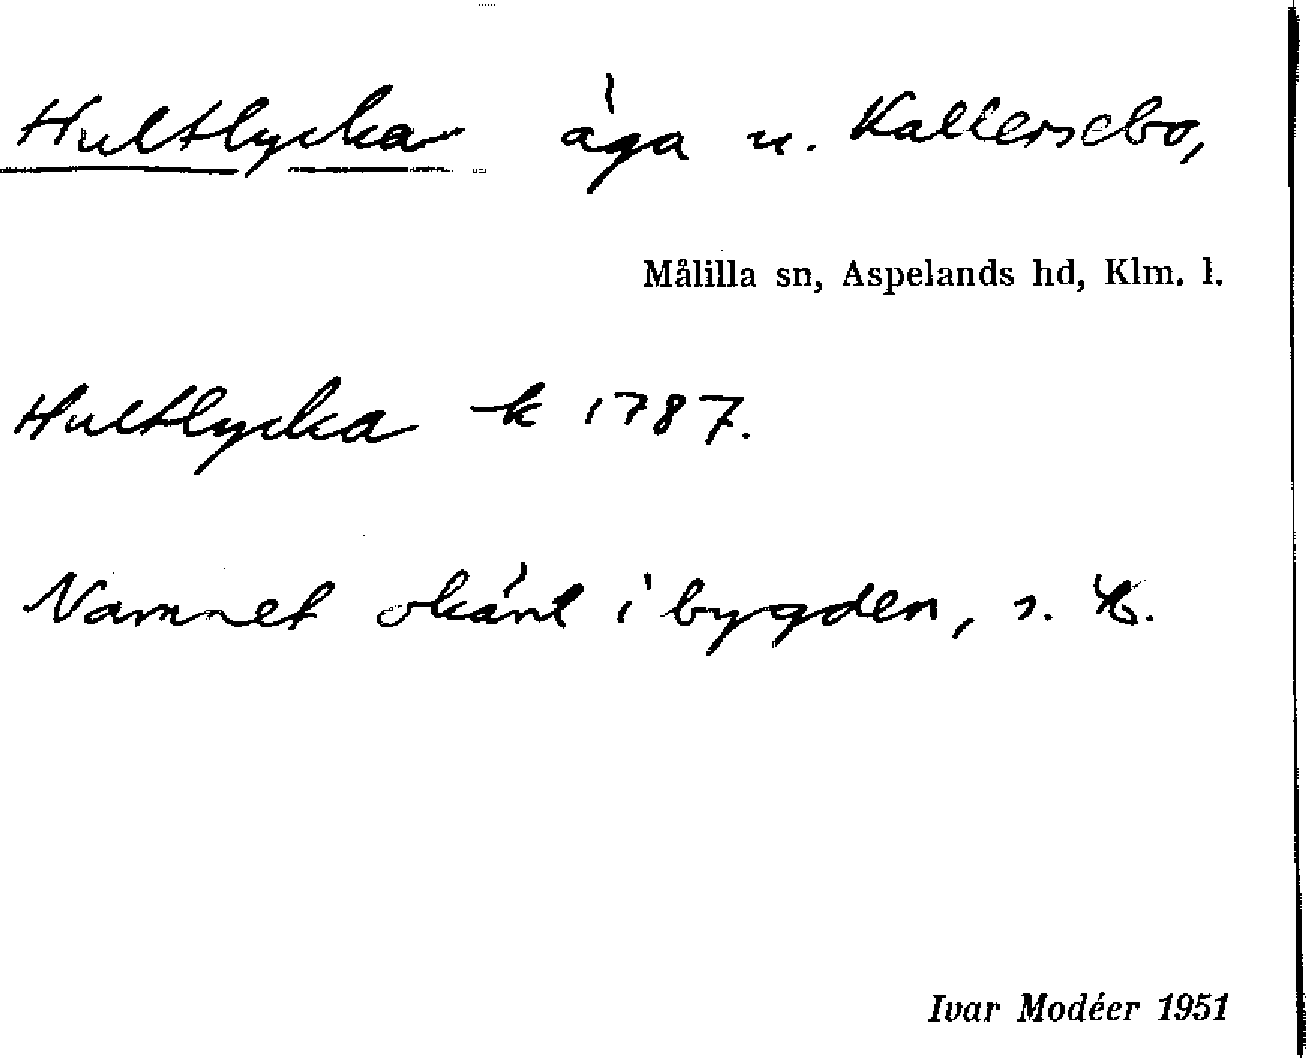 Hultlycka äga u. Kallersebo,
Målilla sn, Aspelands hd, Klm. l.
Hultlycka k 1787.
Namnet okänt i bygden, s.
Ivar Modéer 1951